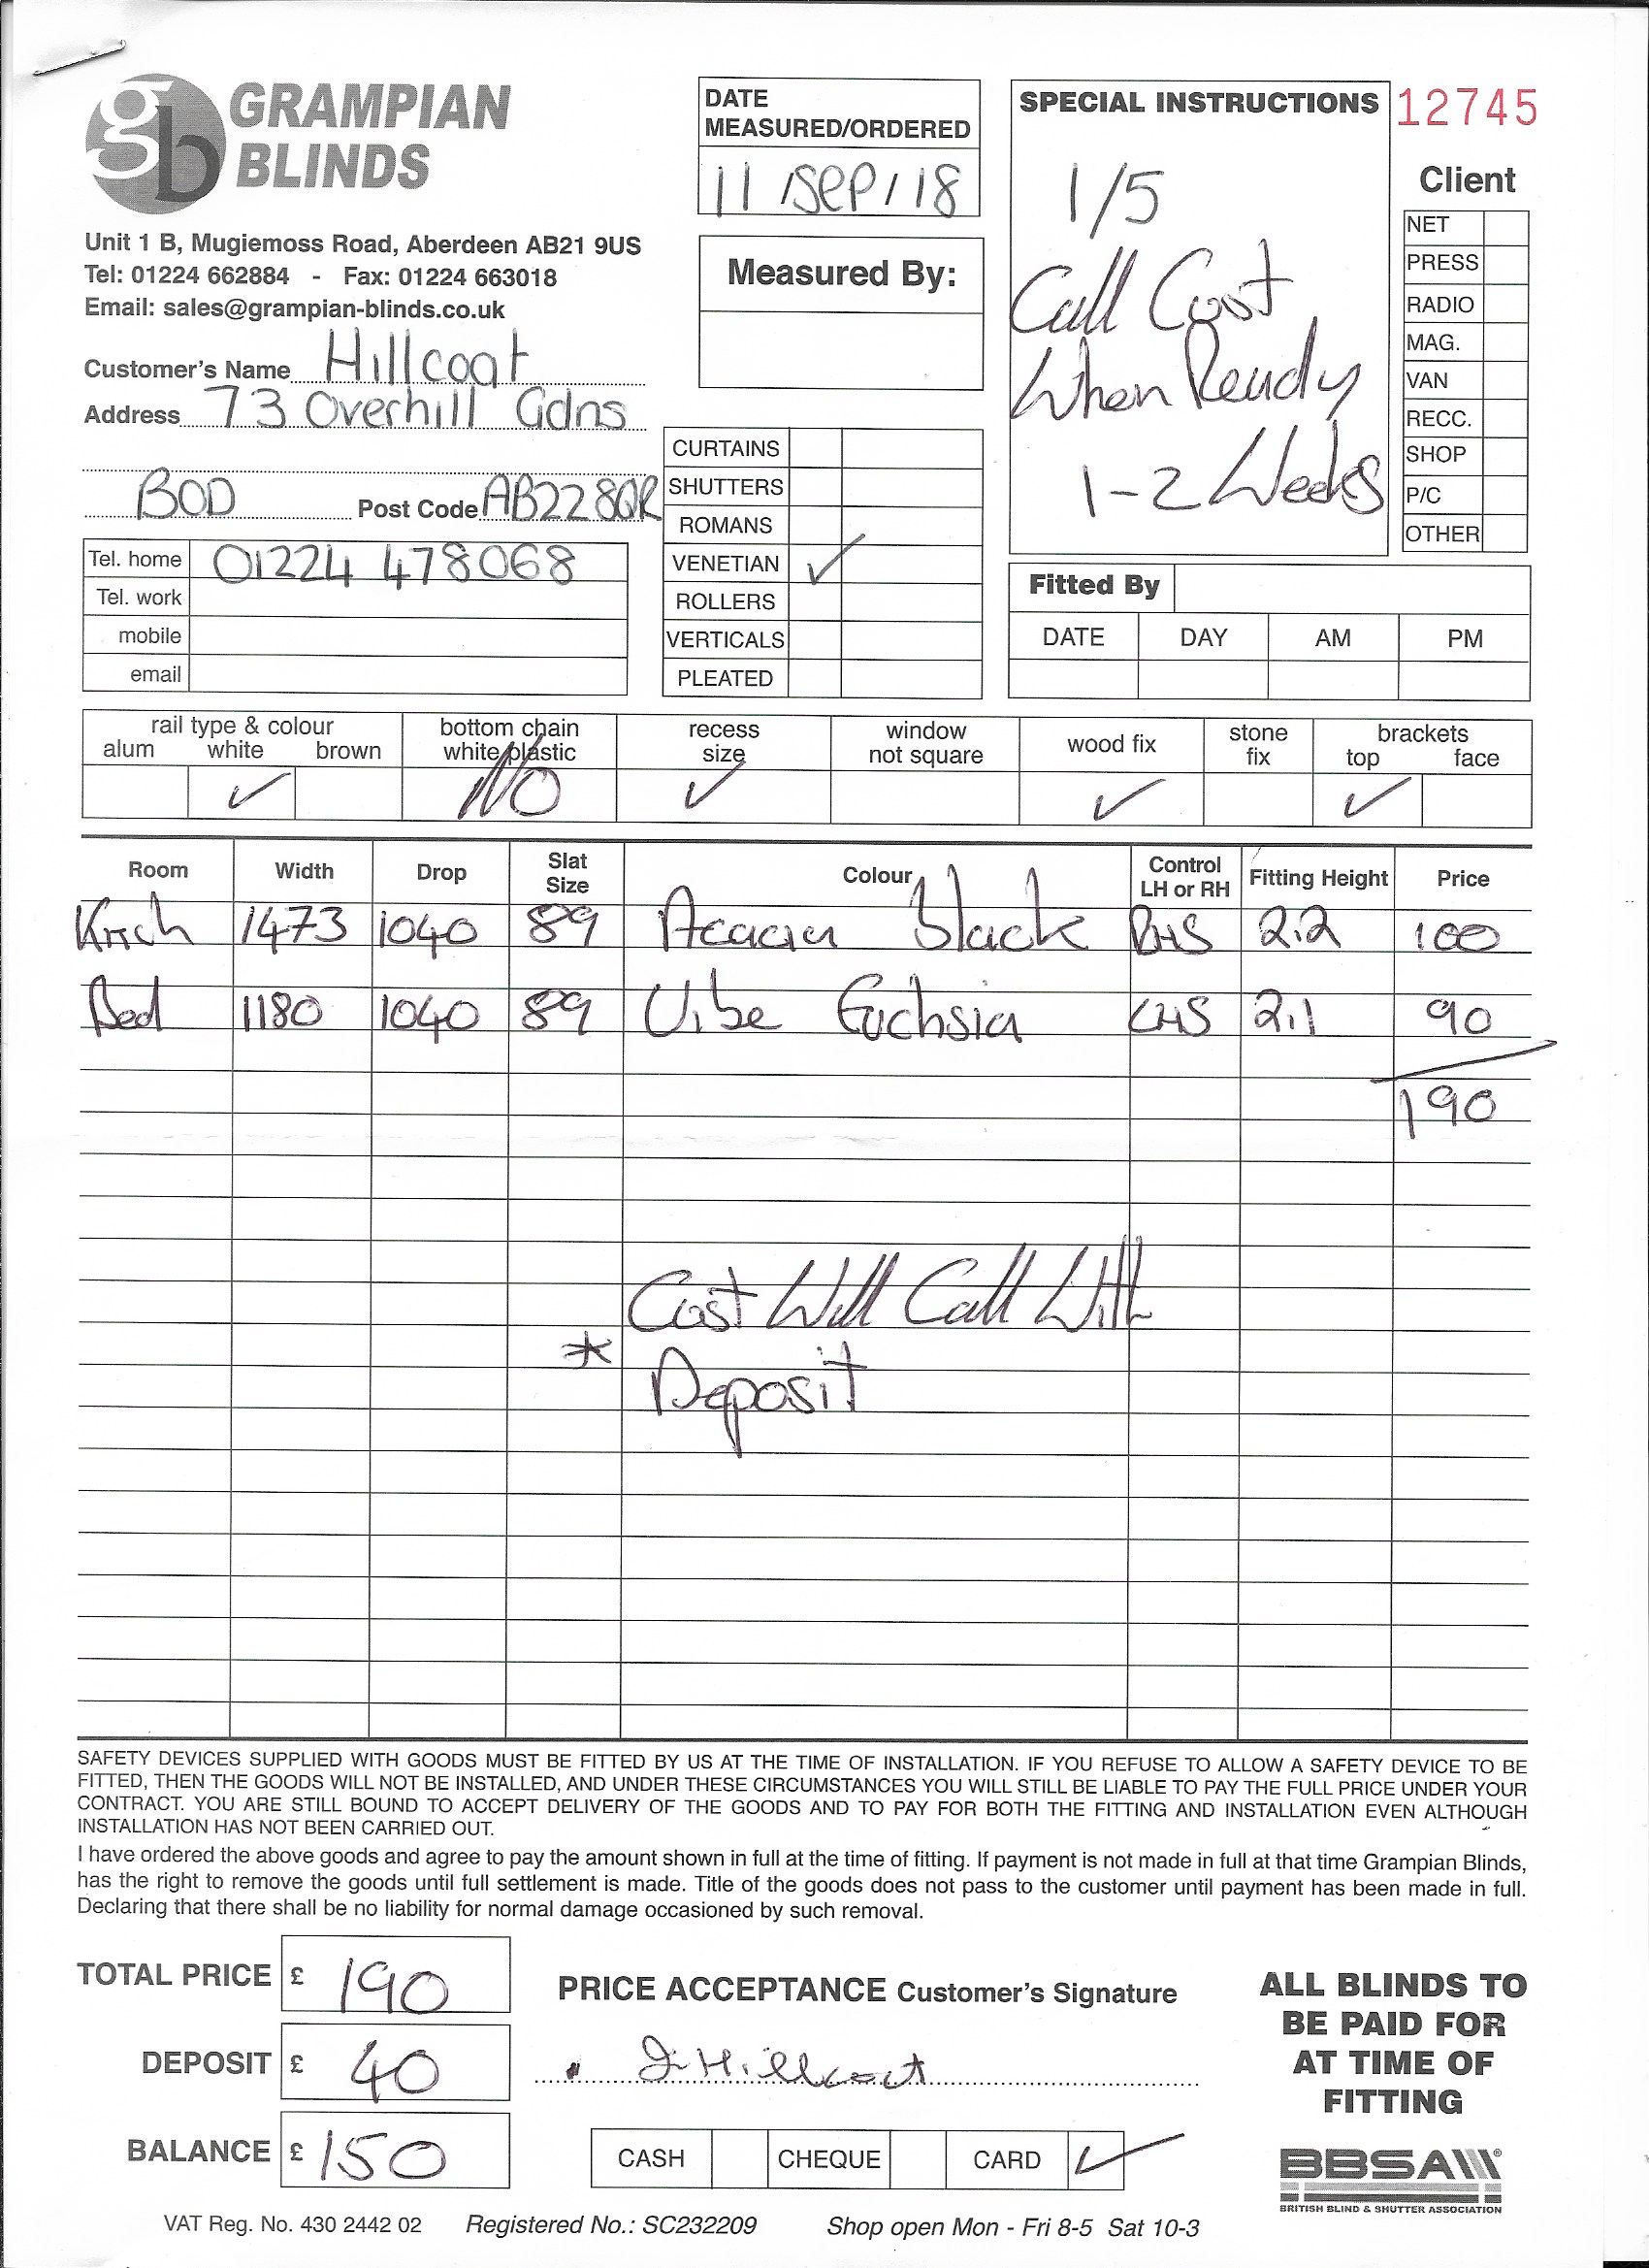 gb GRAMPIAN
BLINDS
Unit 1 B, Mugiemoss Road, Aberdeen AB21 9US
Tel: 01224 662884 - Fax: 01224 663018
Email: sales@grampian-blinds.co.uk
Customer's Name Hillcoat
Address 73 Overhill Gdns
BOD Post Code AB22 8QR
Tel. home 01224 478068
Tel. work
mobile
email
DATE
MEASURED/ORDERED
11/SEP/18
Measured By:
CURTAINS
SHUTTERS
ROMANS
VENETIAN ✓
ROLLERS
VERTICALS
PLEATED
SPECIAL INSTRUCTIONS
1/5
Call Cust
When Ready
1-2 Weeks
12745
Client
NET
PRESS
RADIO
MAG.
VAN
RECC.
SHOP
P/C
OTHER
Fitted By
DATE DAY AM PM
rail type & colour bottom chain recess window wood fix stone brackets
alum white brown white plastic size not square fix top face
✓ NO ✓ ✓ ✓
Room Width Drop Slat Size Colour Control LH or RH Fitting Height Price
Kitch 1473 1040 89 Acacia black RHS 2.2 100
Bed 1180 1040 89 Vibe Fuchsia LHS 2.1 90
190
Cust Will Call With
* Deposit
SAFETY DEVICES SUPPLIED WITH GOODS MUST BE FITTED BY US AT THE TIME OF INSTALLATION. IF YOU REFUSE TO ALLOW A SAFETY DEVICE TO BE
FITTED, THEN THE GOODS WILL NOT BE INSTALLED, AND UNDER THESE CIRCUMSTANCES YOU WILL STILL BE LIABLE TO PAY THE FULL PRICE UNDER YOUR
CONTRACT. YOU ARE STILL BOUND TO ACCEPT DELIVERY OF THE GOODS AND TO PAY FOR BOTH THE FITTING AND INSTALLATION EVEN ALTHOUGH
INSTALLATION HAS NOT BEEN CARRIED OUT.
I have ordered the above goods and agree to pay the amount shown in full at the time of fitting. If payment is not made in full at that time Grampian Blinds,
has the right to remove the goods until full settlement is made. Title of the goods does not pass to the customer until payment has been made in full.
Declaring that there shall be no liability for normal damage occasioned by such removal.
TOTAL PRICE £ 190
DEPOSIT £ 40
BALANCE £ 150
PRICE ACCEPTANCE Customer's Signature
J Hillcoat
CASH CHEQUE CARD ✓
ALL BLINDS TO
BE PAID FOR
AT TIME OF
FITTING
BBSA
BRITISH BLIND & SHUTTER ASSOCIATION
VAT Reg. No. 430 2442 02 Registered No.: SC232209 Shop open Mon - Fri 8-5 Sat 10-3